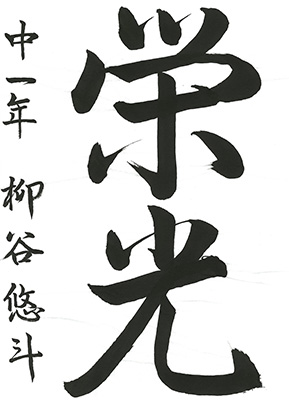 栄光
中一年 柳谷悠斗